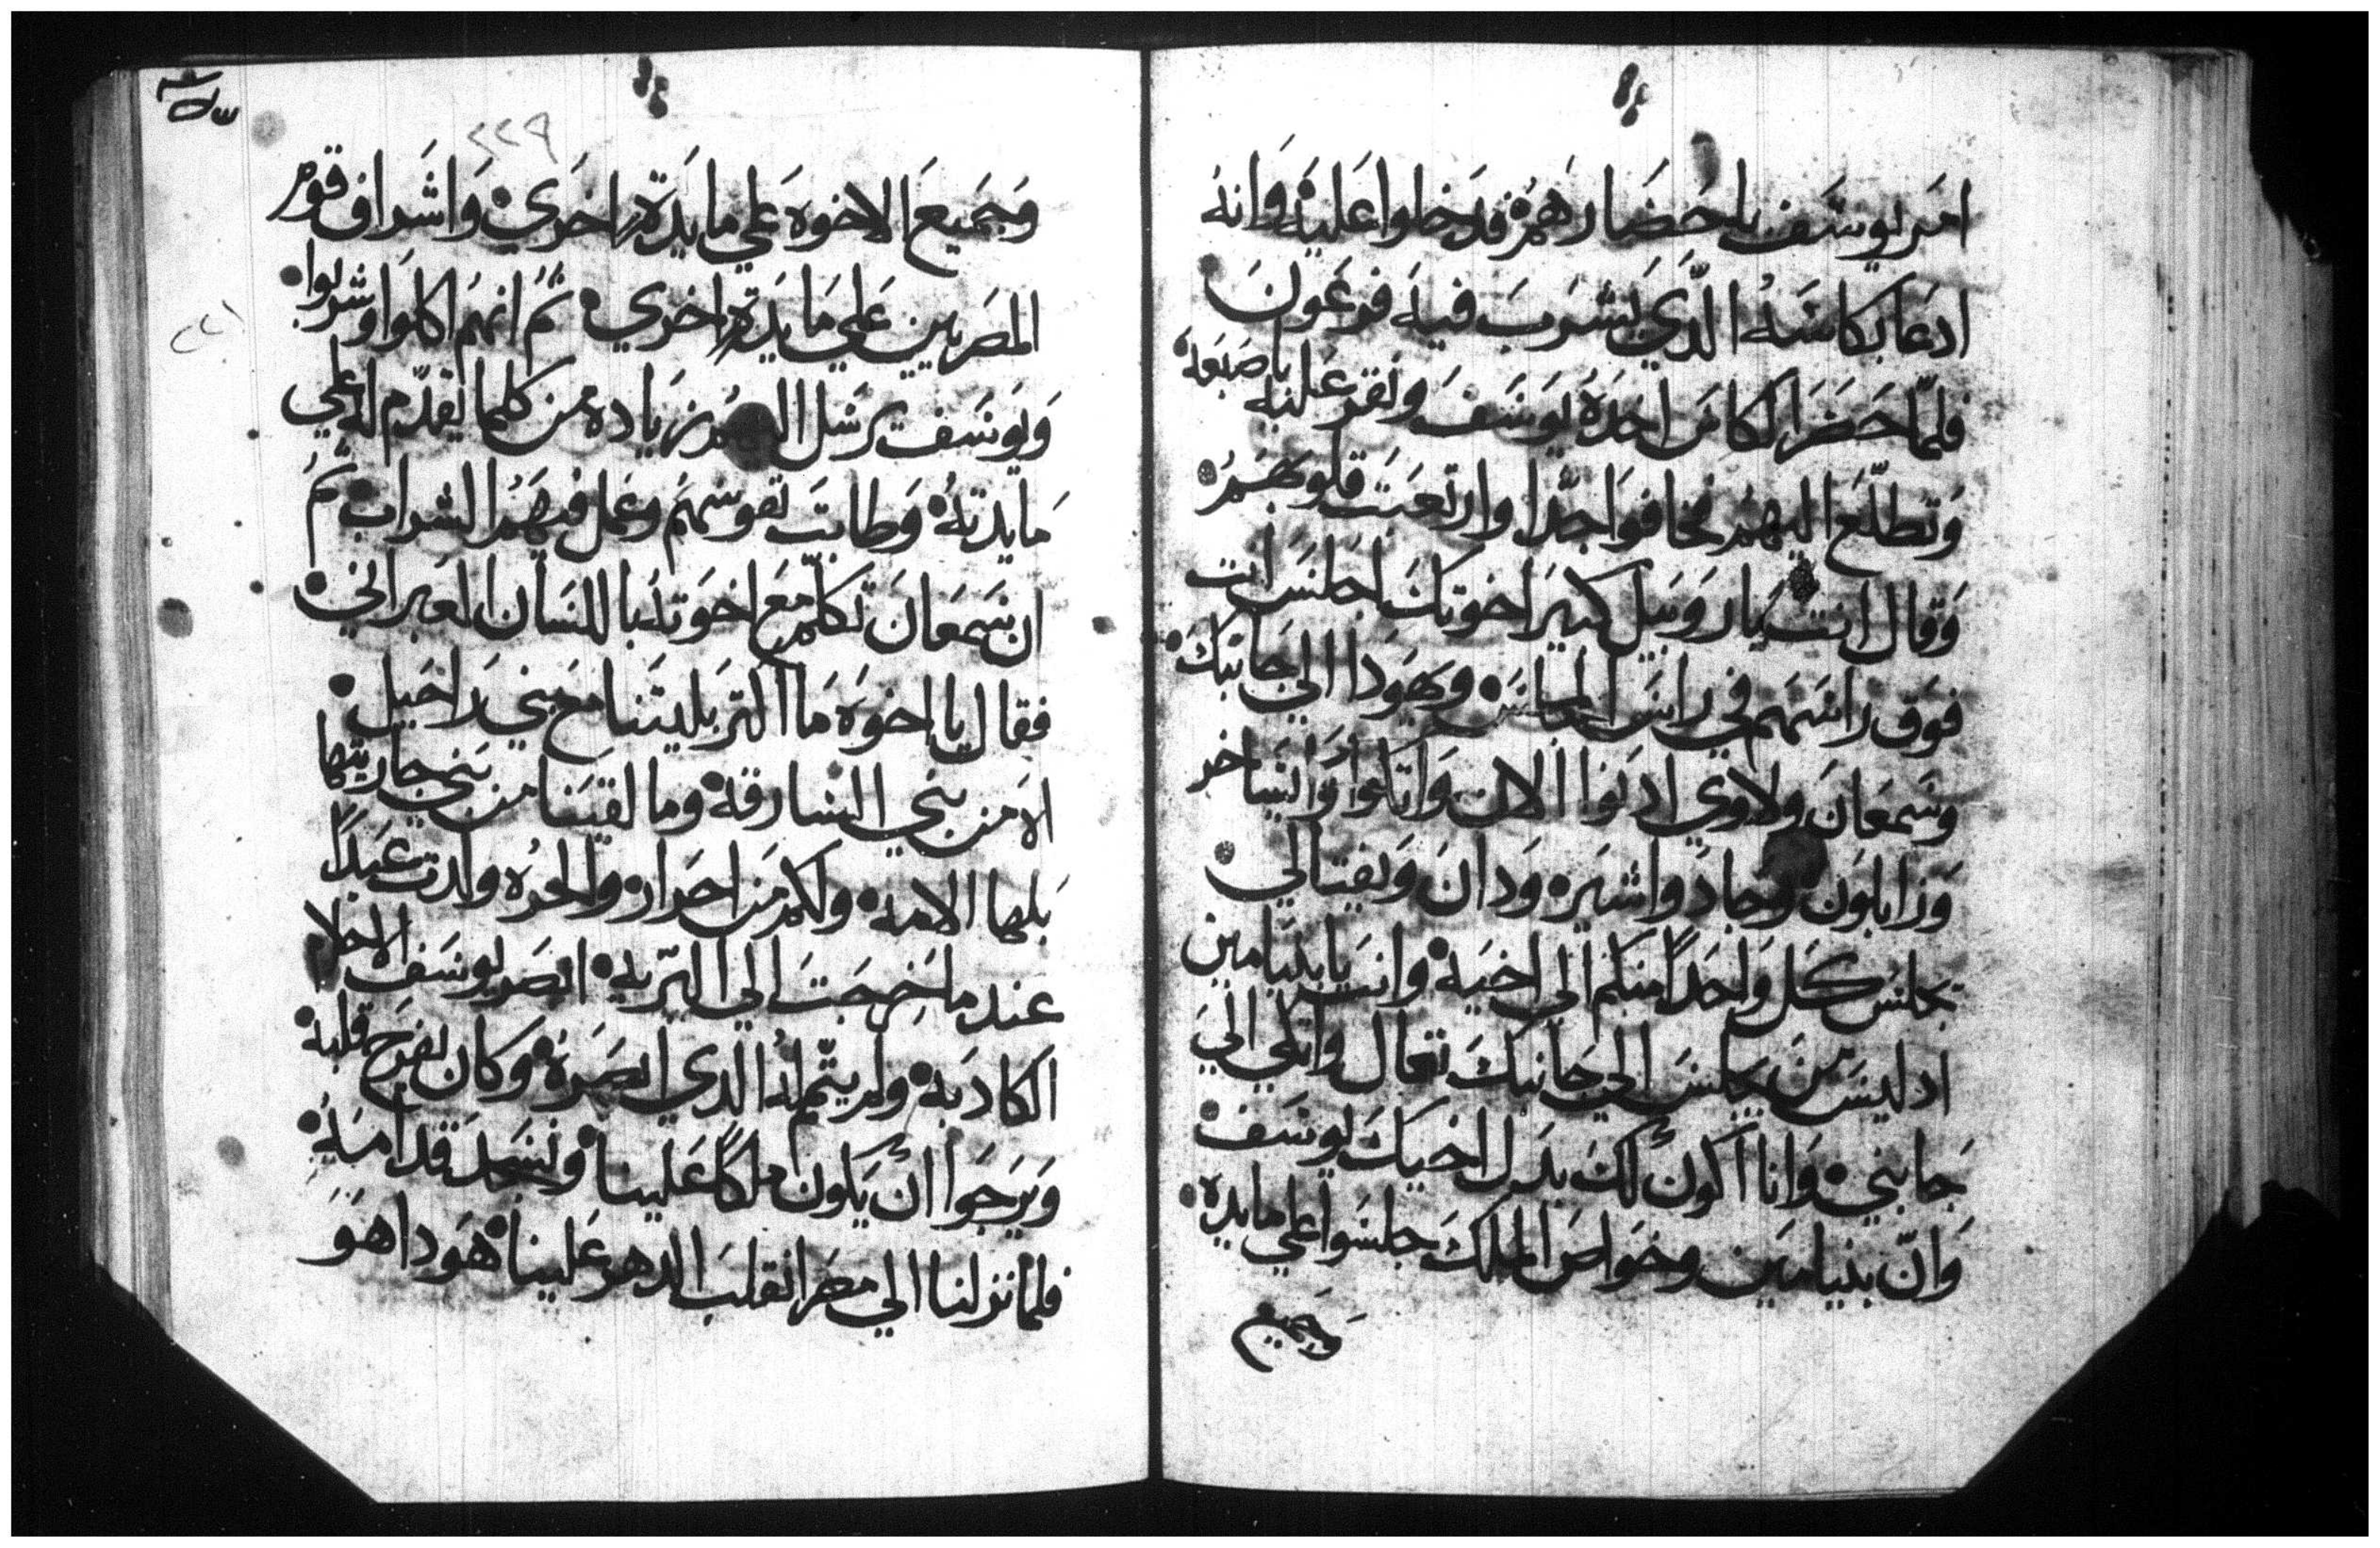 امر يوسف باحضارهم فدخلوا عليه وانه
ادعا بكاسه الدي يشرب فيه فرعون
فلما حضر الكاس اخده يوسف ونقر عليه باصبعه
وتطلع اليهم فخافوا جدا وارتعبت قلوبهم
وقال انت يا روبيل كبير اخوتك اجلس انت
فوق راسهم في راس المجلس ويهودا الي جانبك
وسمعان ولاوي ادنوا الان واتكوا وانت
وزابلون وجاد واشير ودان ونفتالي
يجلس كل واحدا منكم الي اخيه وانت يا بنيامين
اد ليس من يجلس الي جانبك تعال واتكي الي
جانبي وانا اكون لك بدل اخيك يوسف
وان بنيامين وخواص الملك جلسوا علي مايده
وجميع
٢٢٩
وجميع الاخوه علي مايدة اخري واشراف قوم
المصريين علي مايدة اخري تم انهم اكلوا وشربوا
ويوسف يرسل زيادة من كلما يقدم له علي
مايدته وطابت نفوسهم وعمل فيهم الشراب تم
ان سمعان تكلم مع اخوته باللسان العبراني
فقال يا اخوه ما اكتر بليتنا مع بني راحيل
الامن بني السارقه وما لقينا من بني جاريتها
بلها الامه ولكم من احرار والحره ولدت عبدا
عندما خرجت الي البريه ابصر يوسف الاحلام
الكادبه ولم يتم له الدي ابصره وكان يفرح قلبه
ويرجوا ان يكون ملكا علينا ونسجد قداميه
فلما نزلنا الي مصر انقلب الدهر علينا هودا هو